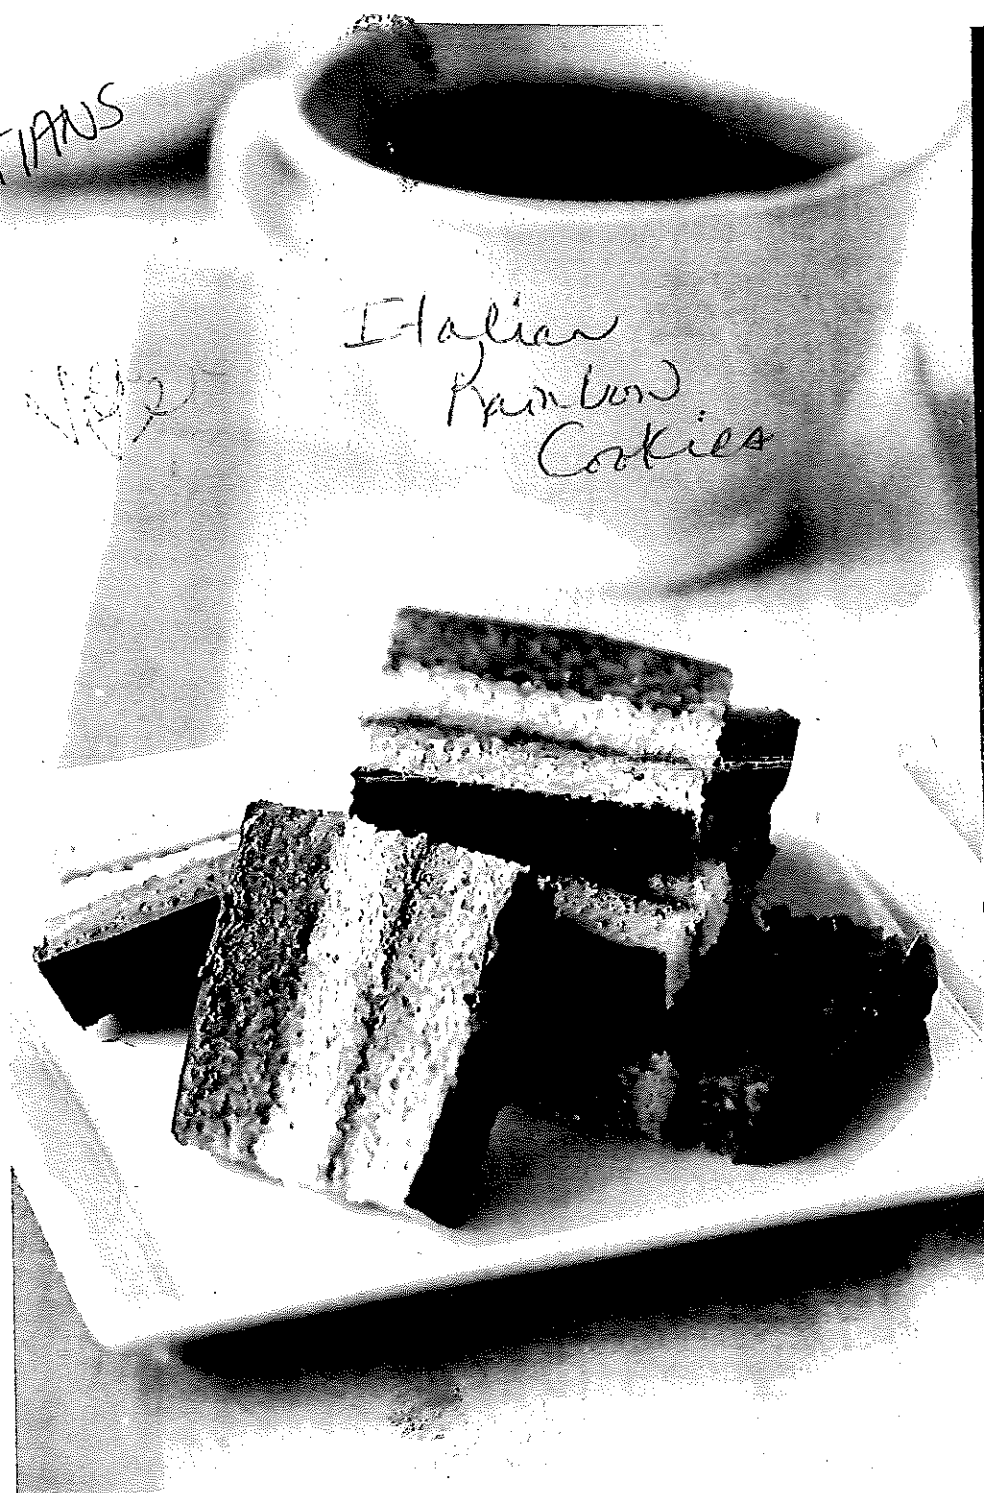 TIANS
Italian
Rainbow
Cookies